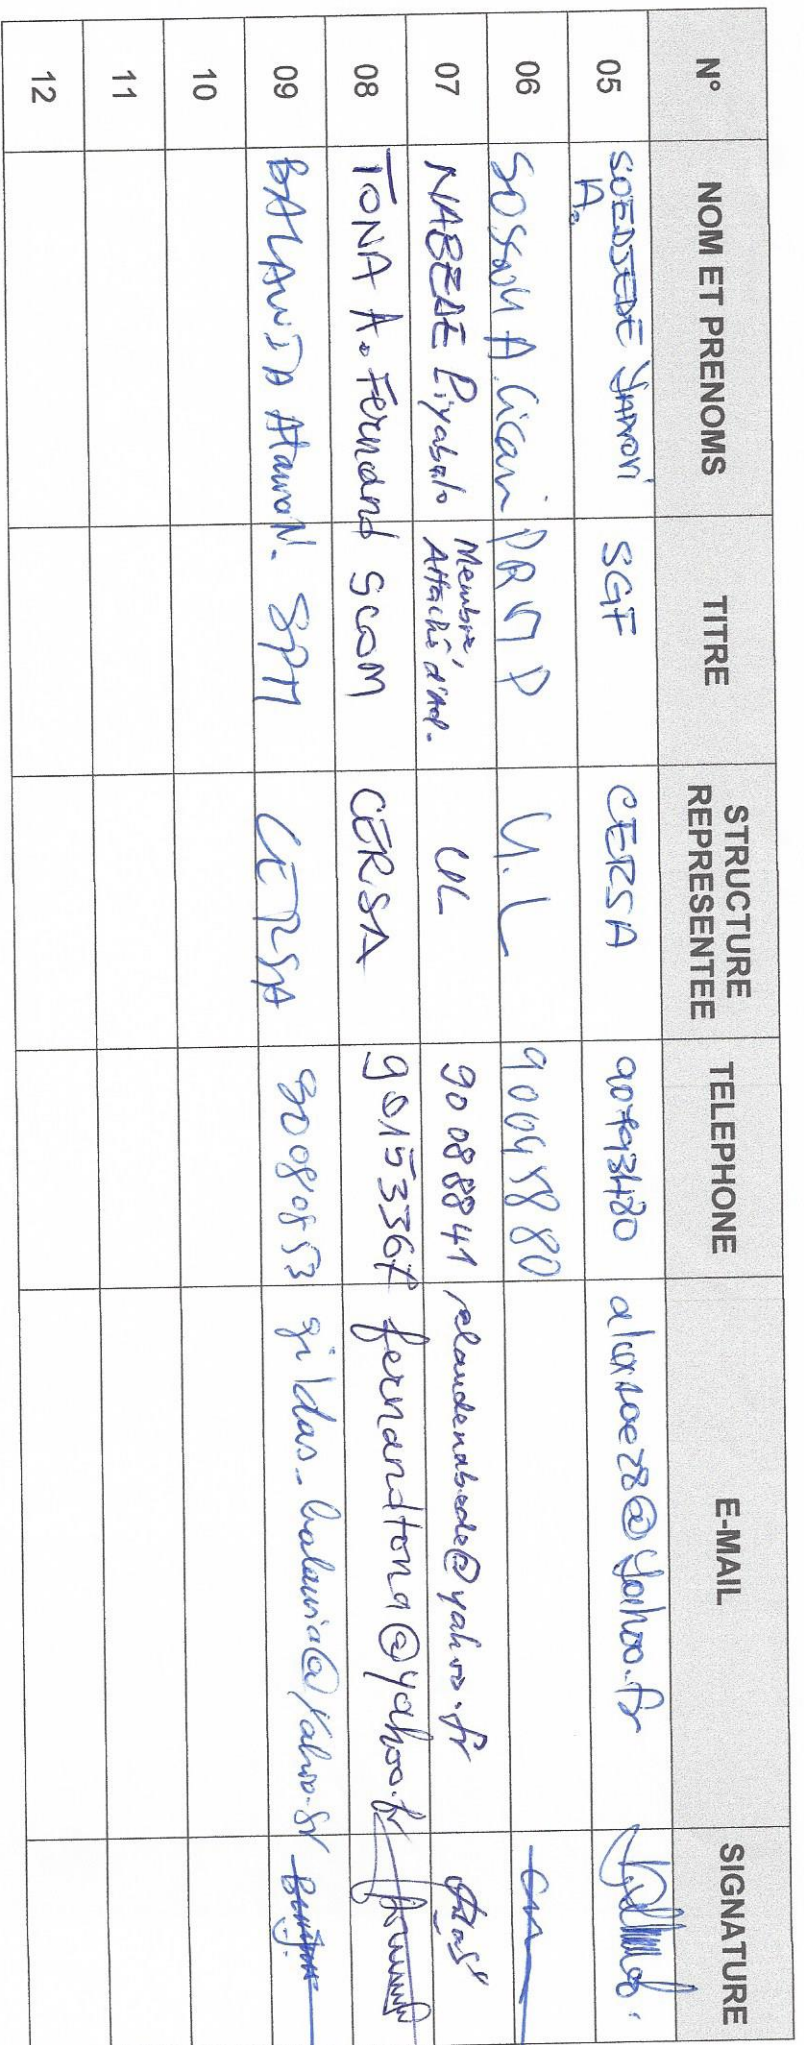 N° NOM ET PRENOMS TITRE STRUCTURE REPRESENTEE TELEPHONE E-MAIL SIGNATURE
05 SOEDJEDE A. SGF CERSA
06 A. PRMP U.L 90095880
07 NABEDE Piyabalo Membre, Attaché d'Ad. UL 90088841 claudenabede@yahoo.fr
08 TONA A. Fernand SCOM CERSA 90153367 fernandtona@yahoo.fr
09 BALAWIA SPM CERSA 90080853 gildas_balawia@yahoo.fr
10
11
12